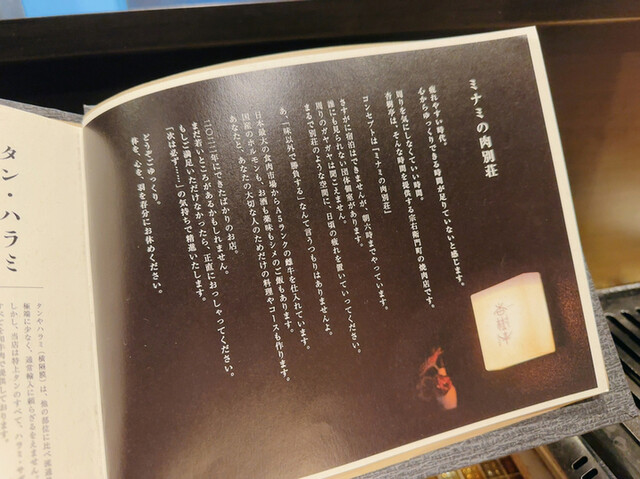 ミナミの肉別荘
疲れやすい時代。
心からゆっくりできる時間が足りていないと感じます。
周りを気にしなくていい時間。
杏樹亭は、そんな時間を提供する宗右衛門町の焼肉店です。
コンセプトは「ミナミの肉別荘」
さすがに宿泊はできませんが、朝六時までやっています。
誰にも見られない団体個室があります。
周りのガヤガヤは聞こえません。
まるで別荘のような空間に、日頃の疲れを置いていってください。
あ、「味以外で勝負する」なんて言うつもりはありませんよ。
日本最大の食肉市場からA5ランクの雌牛を仕入れています。
国産のホルモンも、お酒も薬味もシメのご飯もあります。
あなたと、あなたの大切な人のためだけの料理やコースも作ります。
二〇二二年にできたばかりのお店。
まだ若いところがあるかもしれません。
もしご満足いただけなかったら、正直におっしゃってください。
「次は必ず……」の気持ちで精進いたします。
どうぞごゆっくり。
体を、心を、羽を存分にお休めください。
タン・ハラミ
タンやハラミ（横隔膜）は、他の部位に比べ流通
極端に少なく、通常輸入に頼らざるをえません。
しかし、当店は特上タンのすべて、ハラミ・サガ
すべてを和牛肉で提供しております。